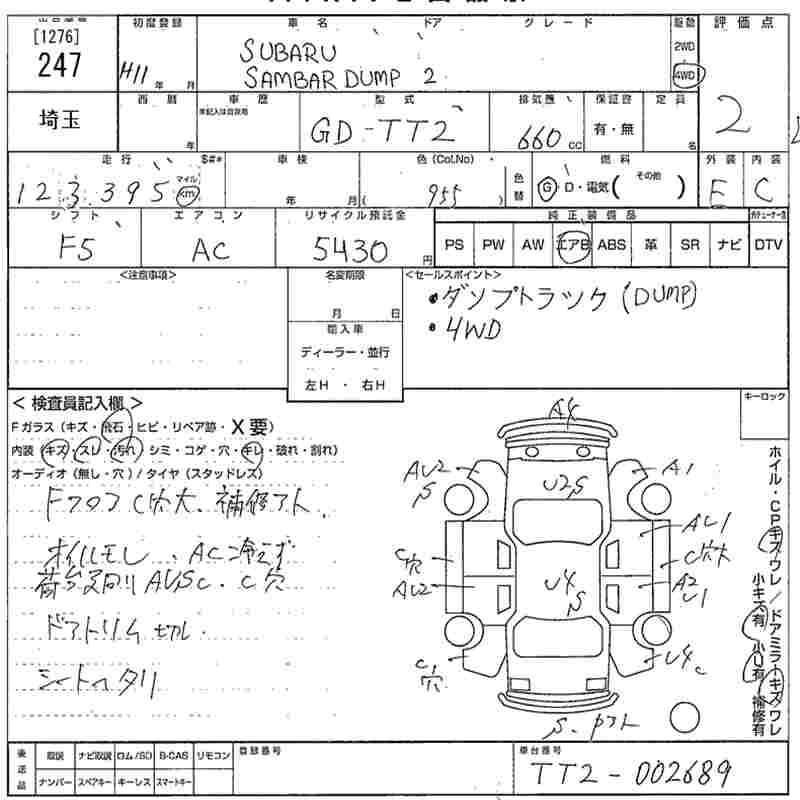 出品番号 初度登録 車名 ドア グレード 駆動 評価点
[1276]
247
H11 年 月
SUBARU
SAMBAR DUMP 2
2WD
4WD
2
埼玉
西暦 車歴 型式 排気量 保証書 定員
未記入は自家用
年
GD-TT2
660 cc
有・無
名
走行 車検 色(Col.No) 色替 燃料 その他 外装 内装
123,395 マイル km
年 月
( 955 )
G・D・電気( )
E
C
シフト エアコン リサイクル預託金 純正装備品
F5 AC 5430 円
PS PW AW エアB ABS 革 SR ナビ DTV
<注意事項> 名変期限 <セールスポイント>
月 日
輸入車
ディーラー・並行
左H ・ 右H
・ダンプトラック (DUMP)
・4WD
キーロック
< 検査員記入欄 >
Fガラス (キズ・飛石・ヒビ・リペア跡・X要)
内装 (キズ・スレ・汚れ・シミ・コゲ・穴・キレ・破れ・割れ)
オーディオ (無し・穴) / タイヤ (スタッドレス)
Fフロア C穴大、補修アト、
オイルモレ、AC冷えず
荷台 AUSC、C穴
ドアトリム切レ
シートヘタリ
A4
AU2
S
A1
U2S
AU1
C穴
C穴大
AU2
U4
S
A2
U1
C穴
U4C
S、
ホイル・CPキズワレ / ドアミラーキズワレ
小キズ有 小U有 補修有
後送品
取説 ナビ取説 ロム/SD B-CAS リモコン
ナンバー スペアキー キーレス スマートキー
登録番号
車台番号
TT2-002689